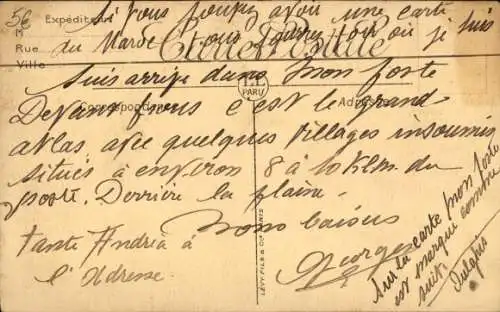 5€
Expéditeur
M
Rue
Ville
Si vous pouvez avoir une carte
du Maroc vous pourrez voir où je suis
Carte Postale
Suis arrivé dans mon poste
Correspondance
Adresse
LL
PARIS
Devant nous c'est le grand
atlas avec quelques villages insoumis
situés à environ 8 à 10 klm. du
poste. Derrière la plaine.
Bons baisers
Georges
Tante Andréa à
l'Adresse
LÉVY FILS & Cie PARIS
Sur la carte mon poste
est marqué comme
suit.